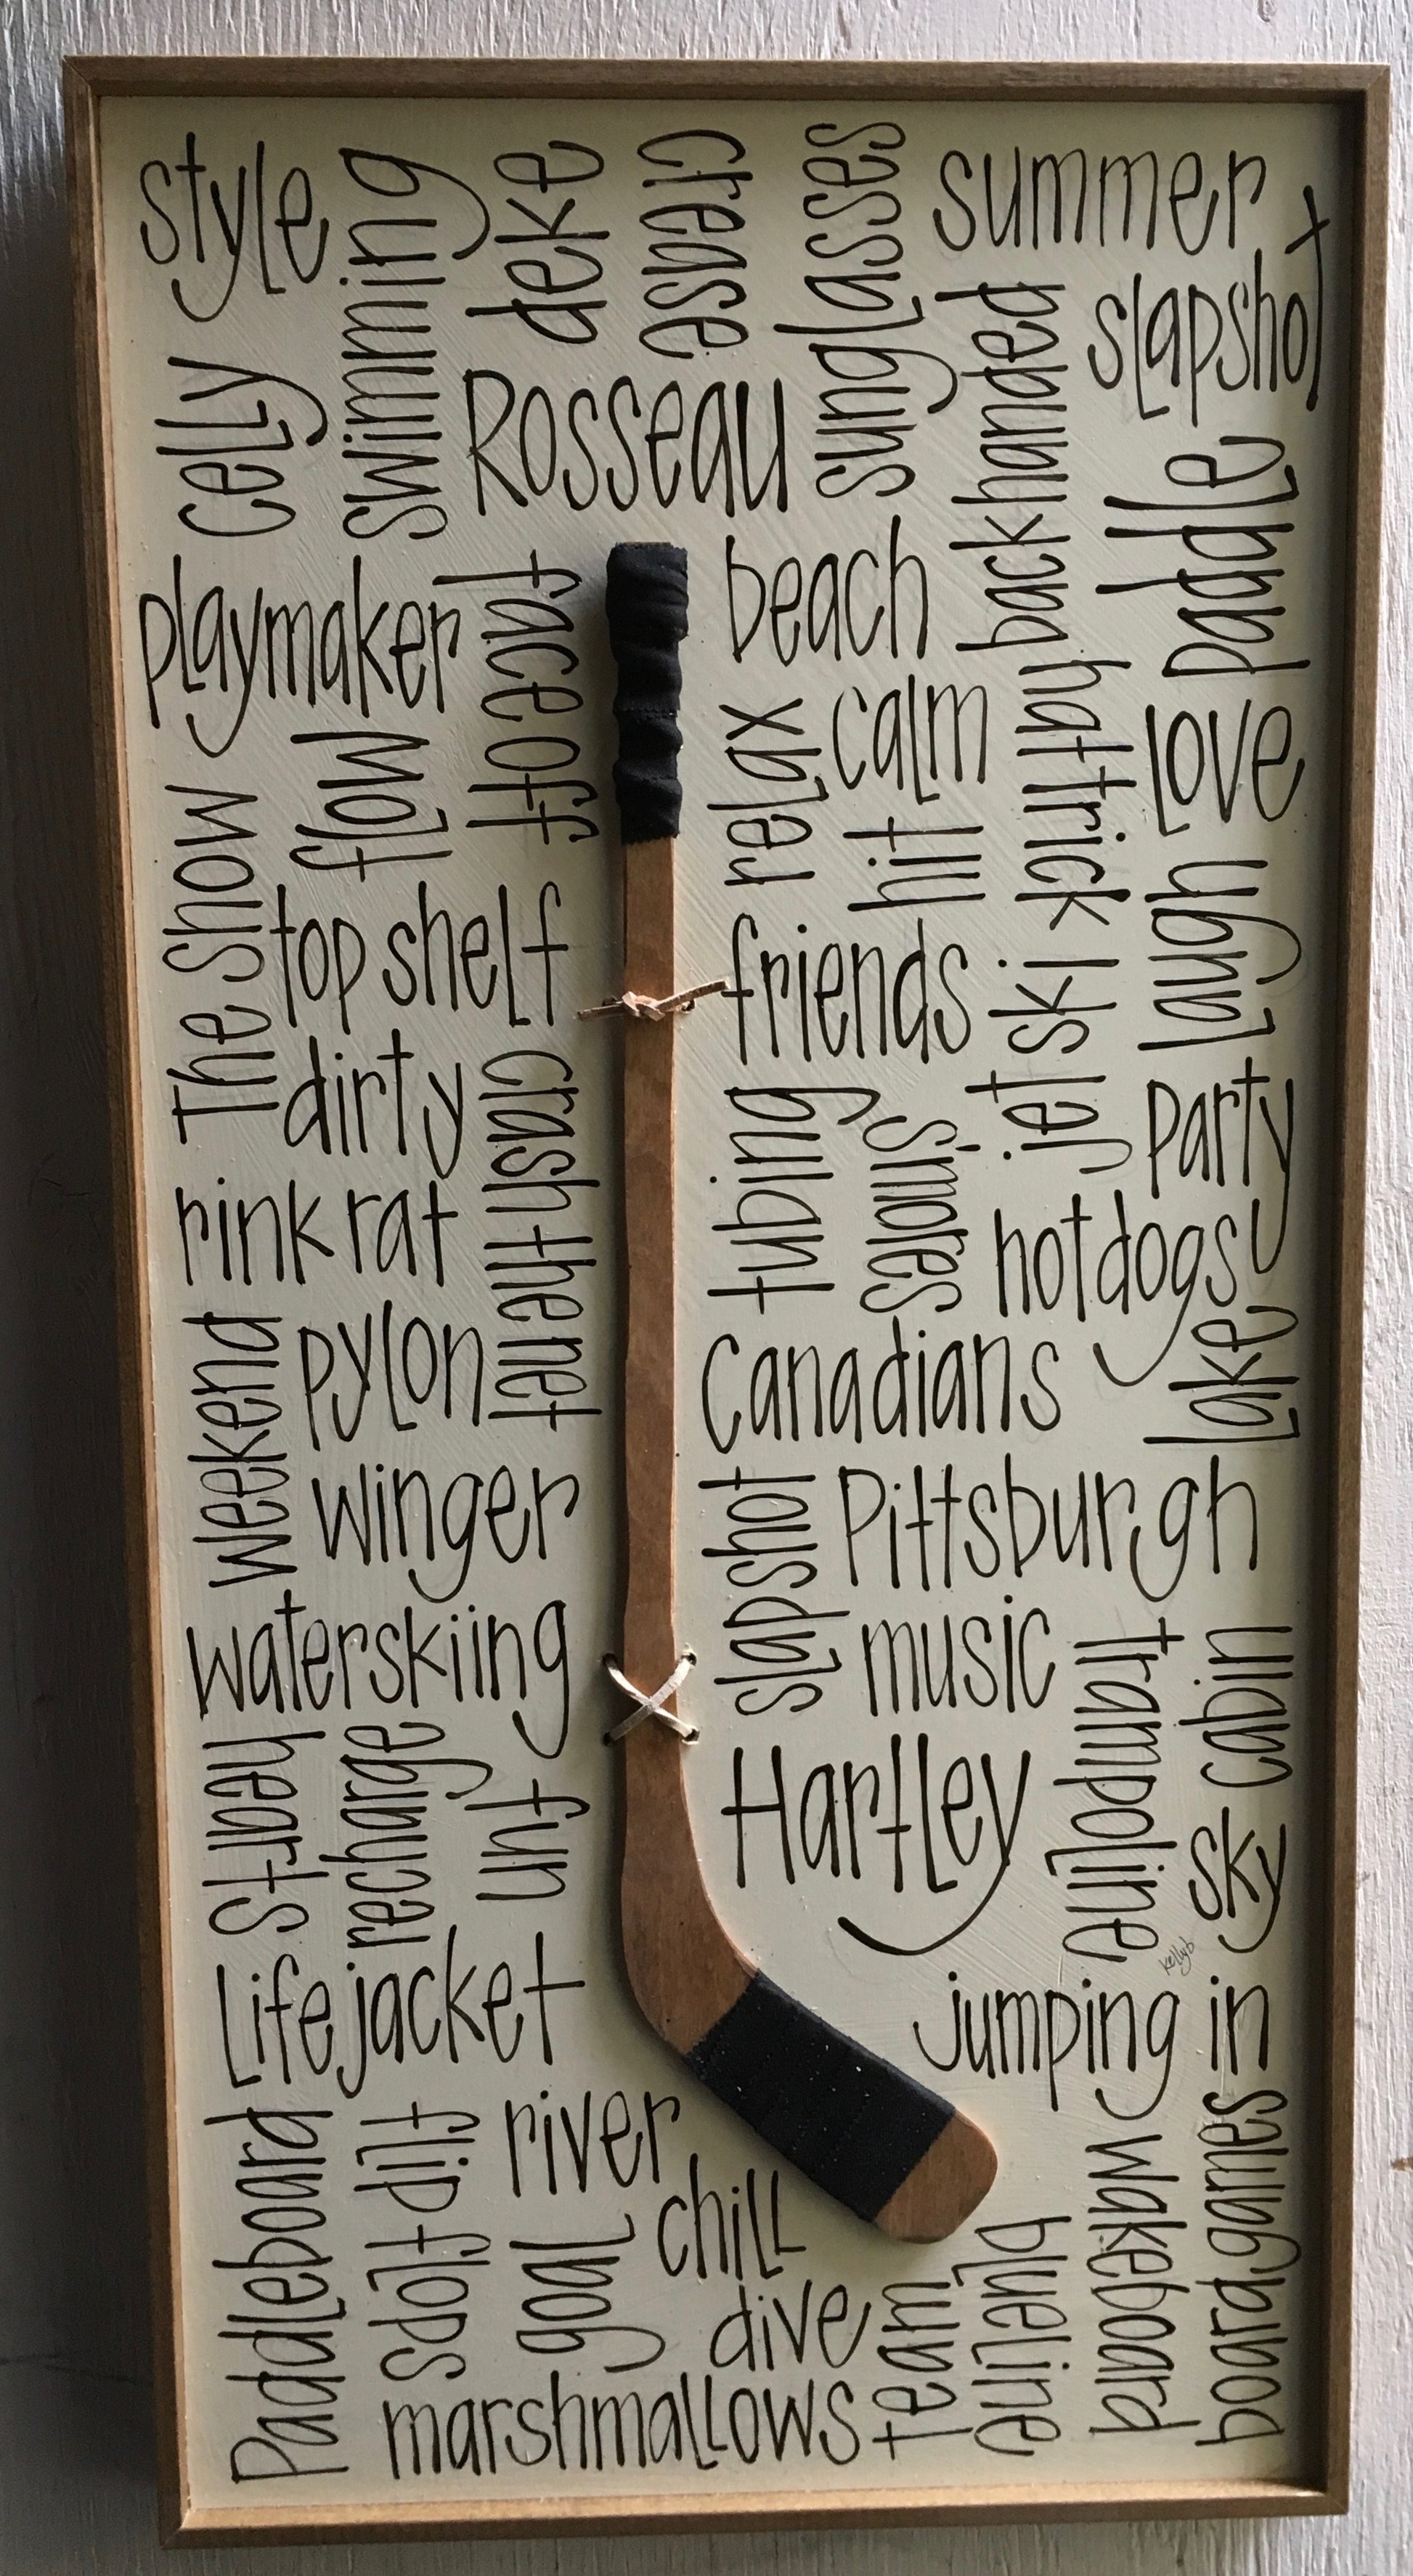 style
swimming
deke
crease
sunglasses
summer
slapshot
celly
Rosseau
backhanded
paddle
playmaker
face off
beach
flow
relax
calm
hattrick
love
The Show
hit
top shelf
friends
jet ski
laugh
dirty
crash the net
tubing
smores
party
rink rat
hotdogs
weekend
pylon
Canadians
lake
winger
slapshot
Pittsburgh
waterskiing
music
trampoline
cabin
St.
recharge
fun
Hartley
sky
kellyb
Life jacket
jumping in
Paddleboard
flip flops
river
chill
goal
dive
team
blueline
wakeboard
board games
marshmallows